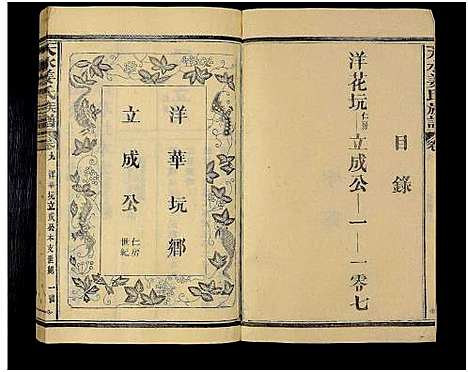 天水姜氏族譜
目錄
洋花坑仁房立成公—一—一零七
洋華玩鄉
立成公仁房世紀
天水姜氏族譜
洋華玩立成公本支世系